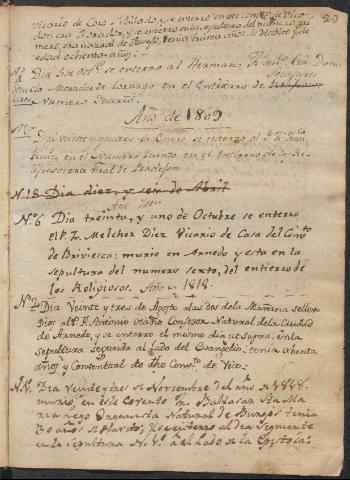 23
Vicario de Coro Jubilado, y se enterro en este Conv.to de Vico
don era Morador, y se enterro en la sepultura del numero pri
mero, era natural de
edad ochenta años
Dia se enterro al Hermano
Morador de Lornago en el Entierro de Seculares
Numero Quarto.
Año de 1809
Dia veinte y quatro de Enero se enterro al P. Fr. Fran
en el Numero Quinto en el entierro de los Re
ligiosos era n.ral de Pradejon
N. 18. Dia diez, y seis de Abril
Año
N.º 6 Dia treinta, y uno de Octubre se enterro
el P. F. Melchor Diez Vicario de Casa del Con.to
de Briviesca: murio en Arnedo y esta en la
sepultura del numero sexto, del entierro de
los Religiosos. Año 1818.
N.º 2 Dia Veinte y tres de Agosto a las dos de la Mañana se llevo
Dios al P. F. Antonio Confesor Natural de la Ciudad
de Arnedo, y se enterro el mismo dia ut supra, en la
sepultura segunda al lado del Evangelio: tenia ochenta
años y Conventual de dho Conv.to de Vico.
Dia Veinte y tres de Noviembre del año de 1818.
murio en este Convento Fr. Baltasar Sta Ma
ria Organista Natural de Burgos tenia
30 años de Havito; se enterro al dia siguiente
en la sepultura al Lado de la Epistola.